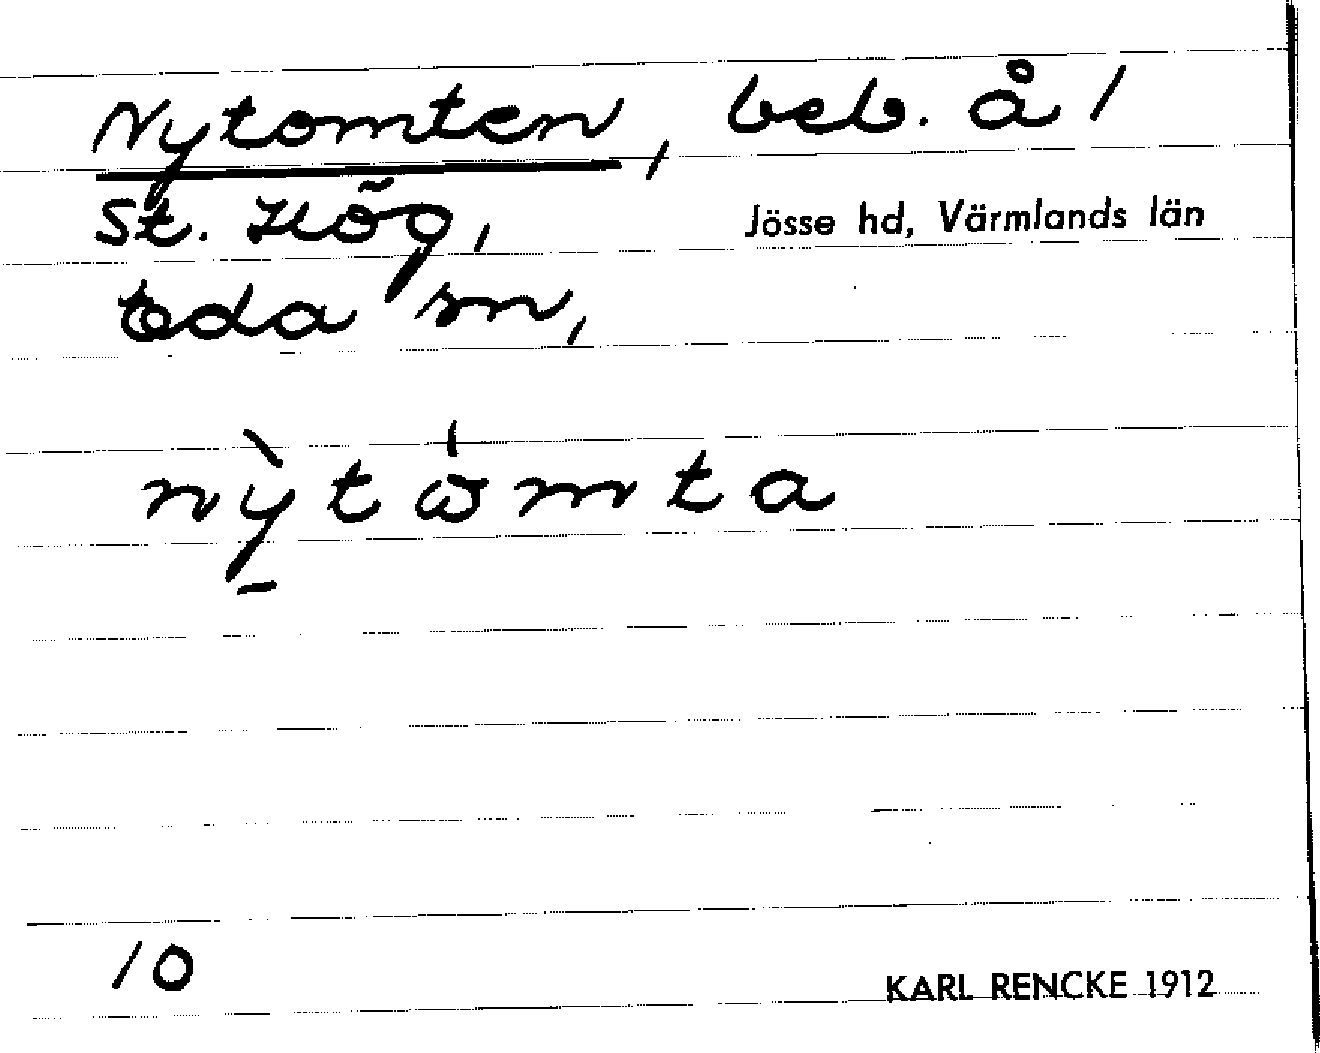 Nytomten, beb. å 1
St. Hög,
Jösse hd, Värmlands län
Eda sn,
nỳtώmta
10
KARL RENCKE 1912